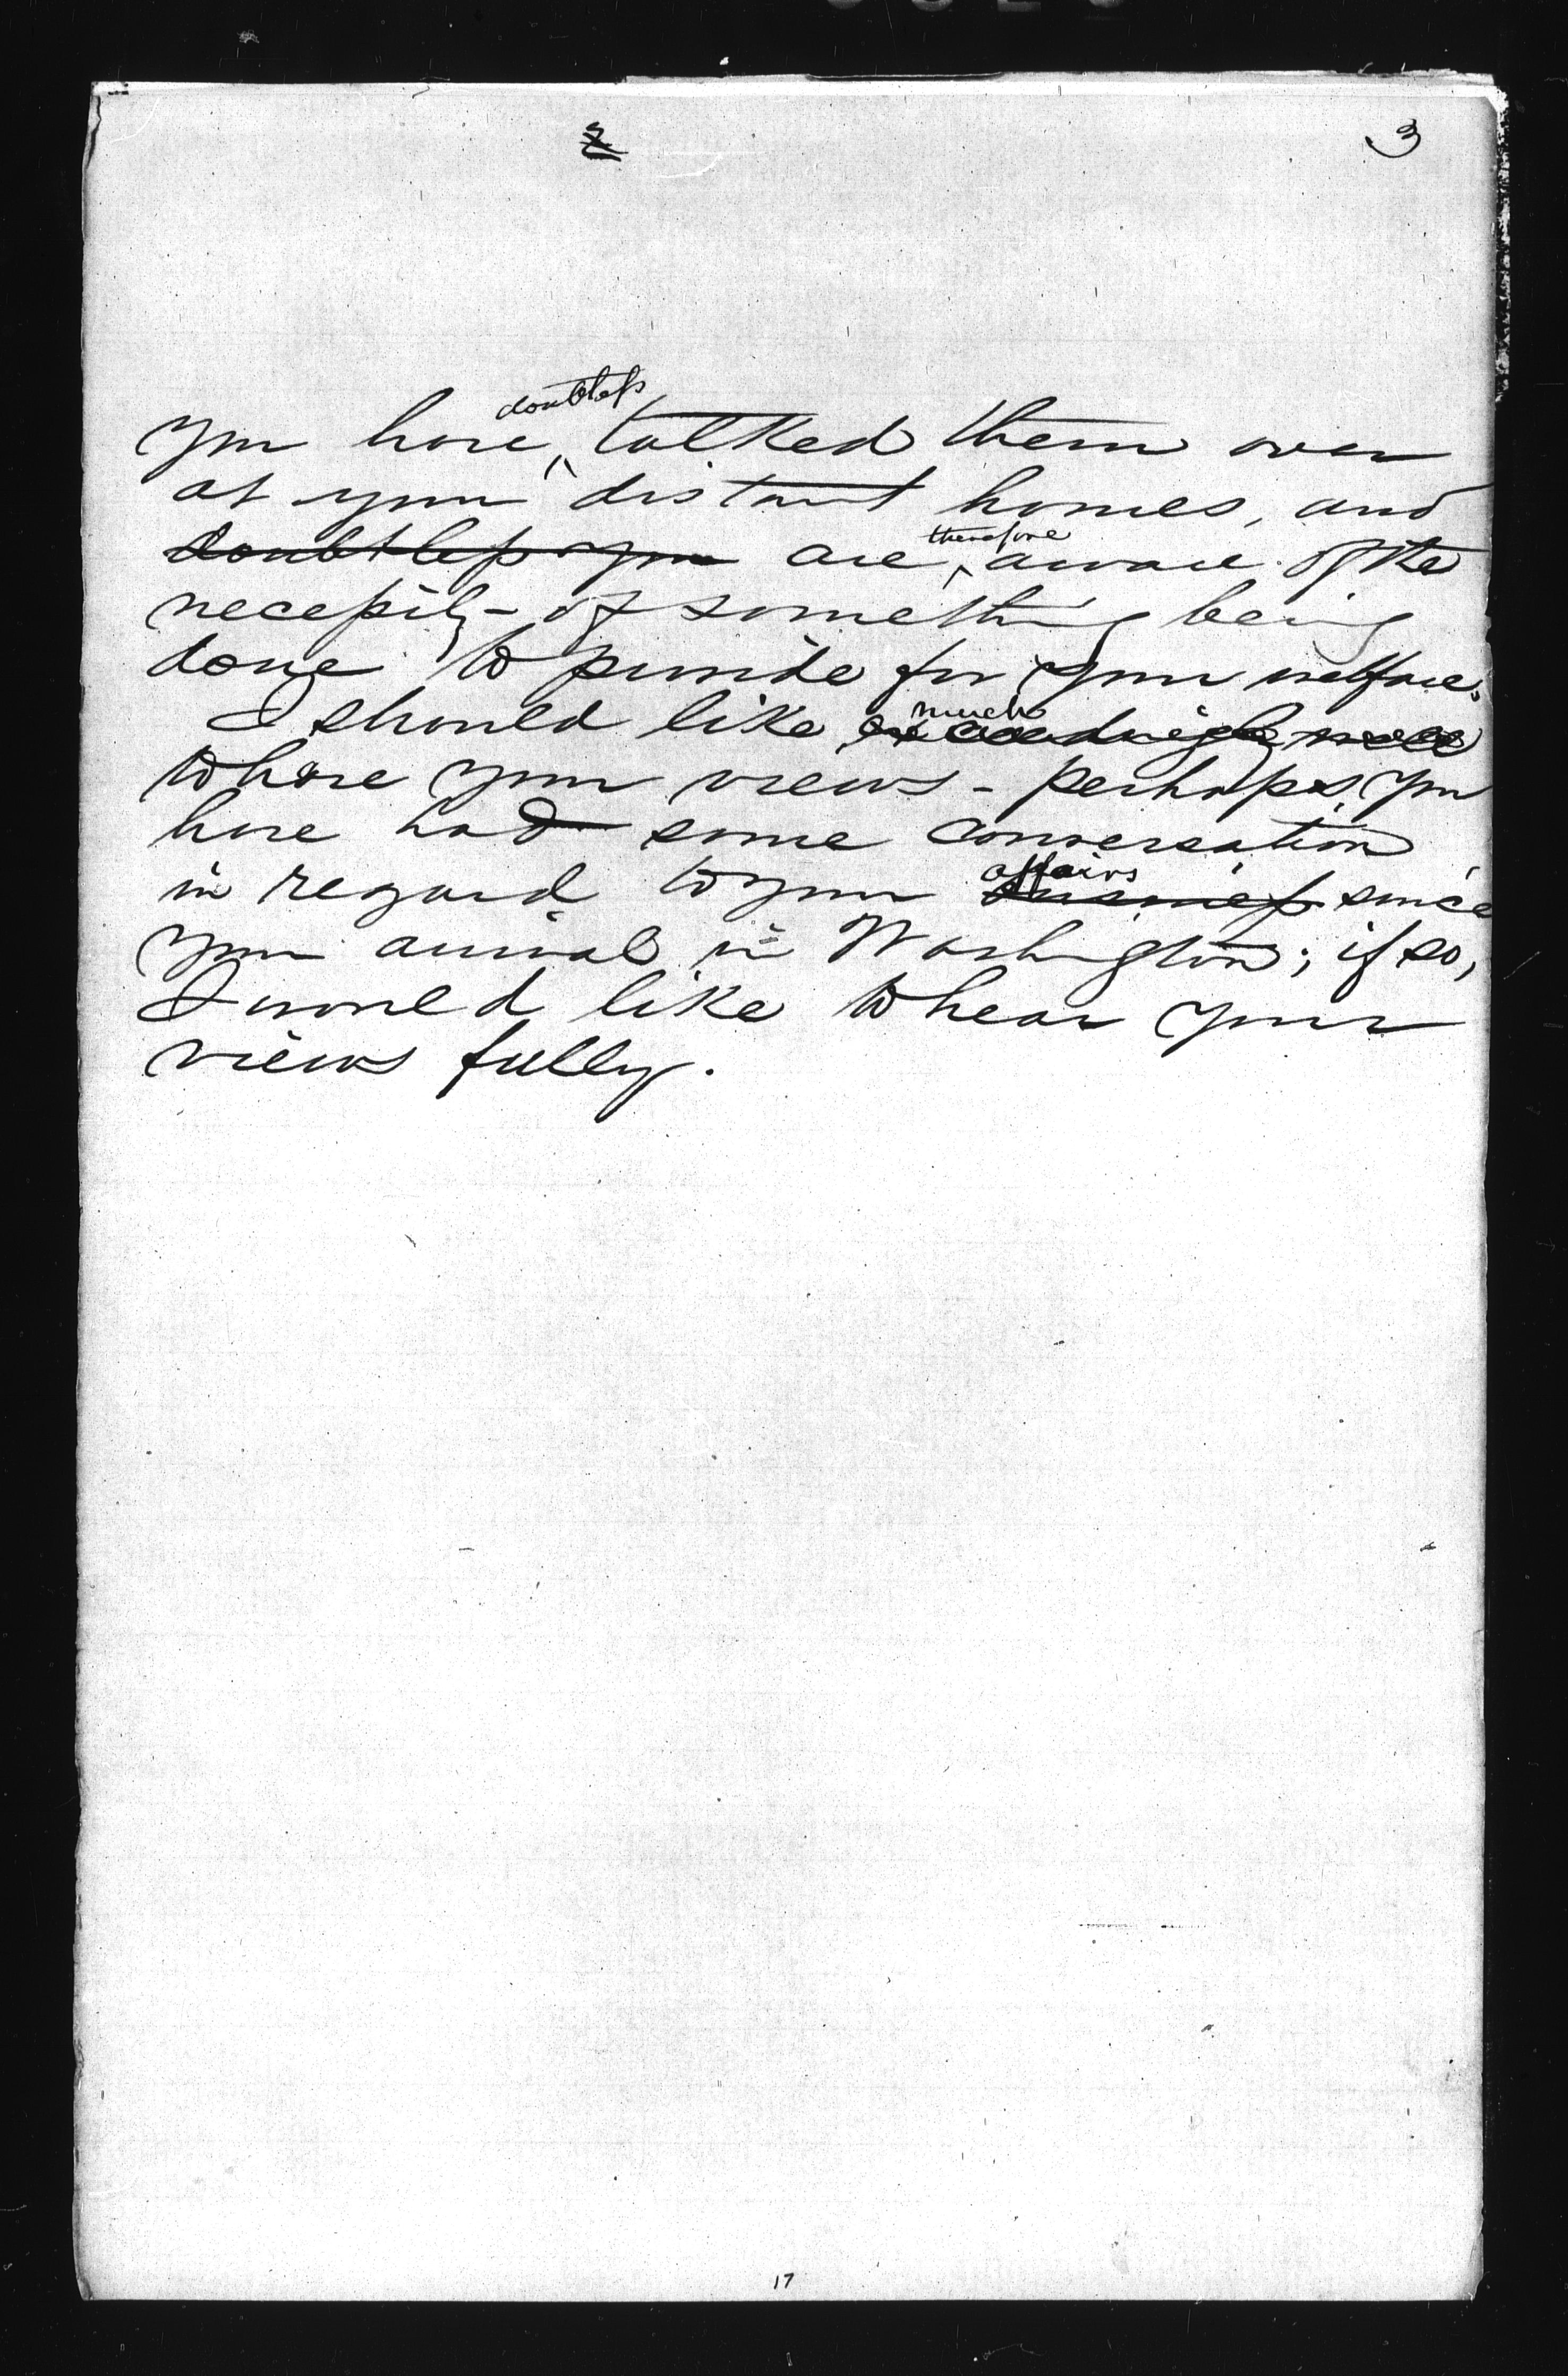 3
you have doubtless talked them over
at your distant homes, and
doubtless you are therefore aware of the
necessity of something being
done to provide for your welfare.
I should like exceedingly much well
to have your views - perhaps you
have had some conversation
in regard to your business affairs since
your arrival in Washington; if so,
I would like to hear your
views fully.
17